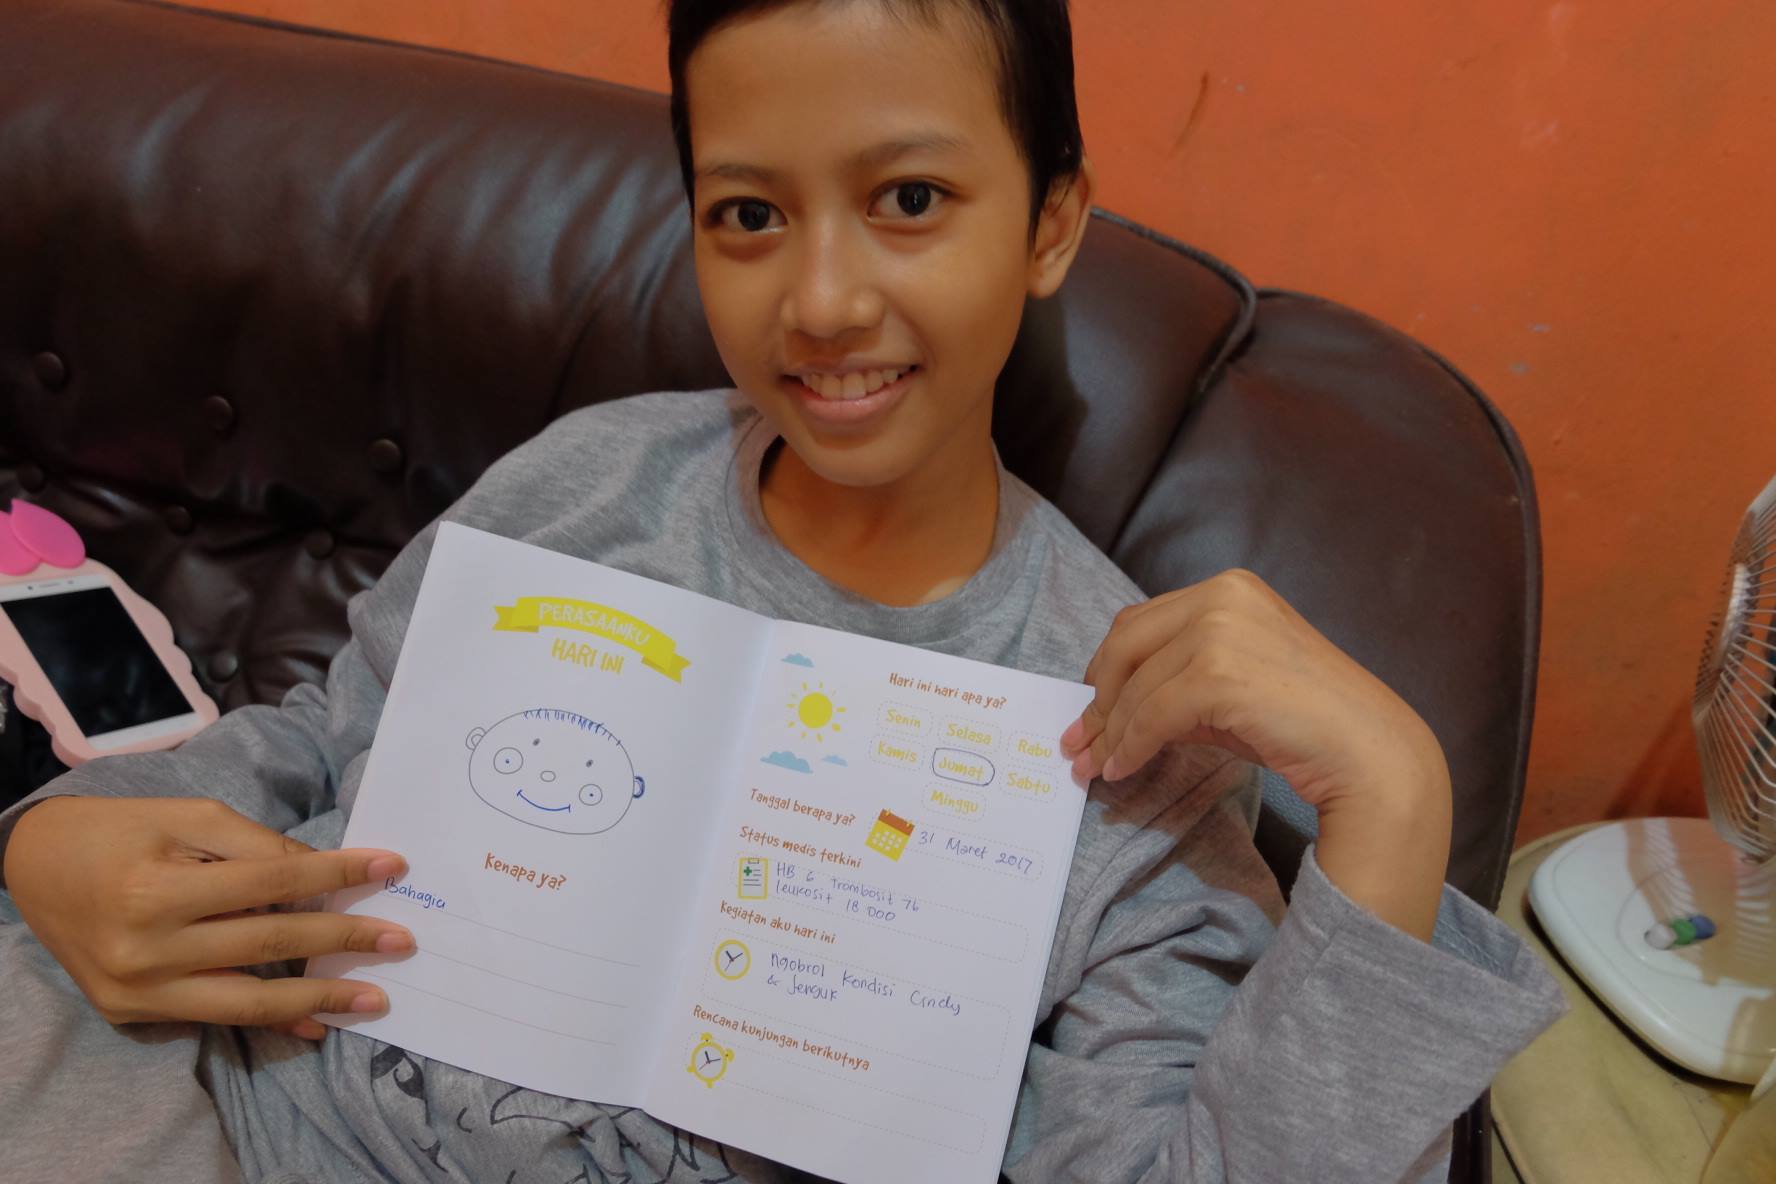 PERASAANKU
HARI INI
Kenapa ya?
Bahagia
Hari ini hari apa ya?
Senin Selasa Rabu
Kamis Jumat Sabtu
Minggu
Tanggal berapa ya?
31 Maret 2017
Status medis terkini
HB 6 Trombosit 76
leukosit 18 000
Kegiatan aku hari ini
ngobrol Kondisi Cindy
& Jenguk
Rencana kunjungan berikutnya